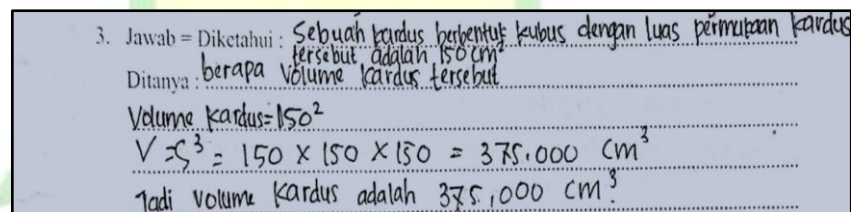 3. Jawab = Diketahui : Sebuah kardus berbentuk kubus dengan luas permukaan kardus
tersebut adalah 150 cm²
Ditanya : berapa volume kardus tersebut
Volume kardus = 150²
V = S³ = 150 x 150 x 150 = 375.000 cm³
Jadi volume kardus adalah 375.000 cm³.